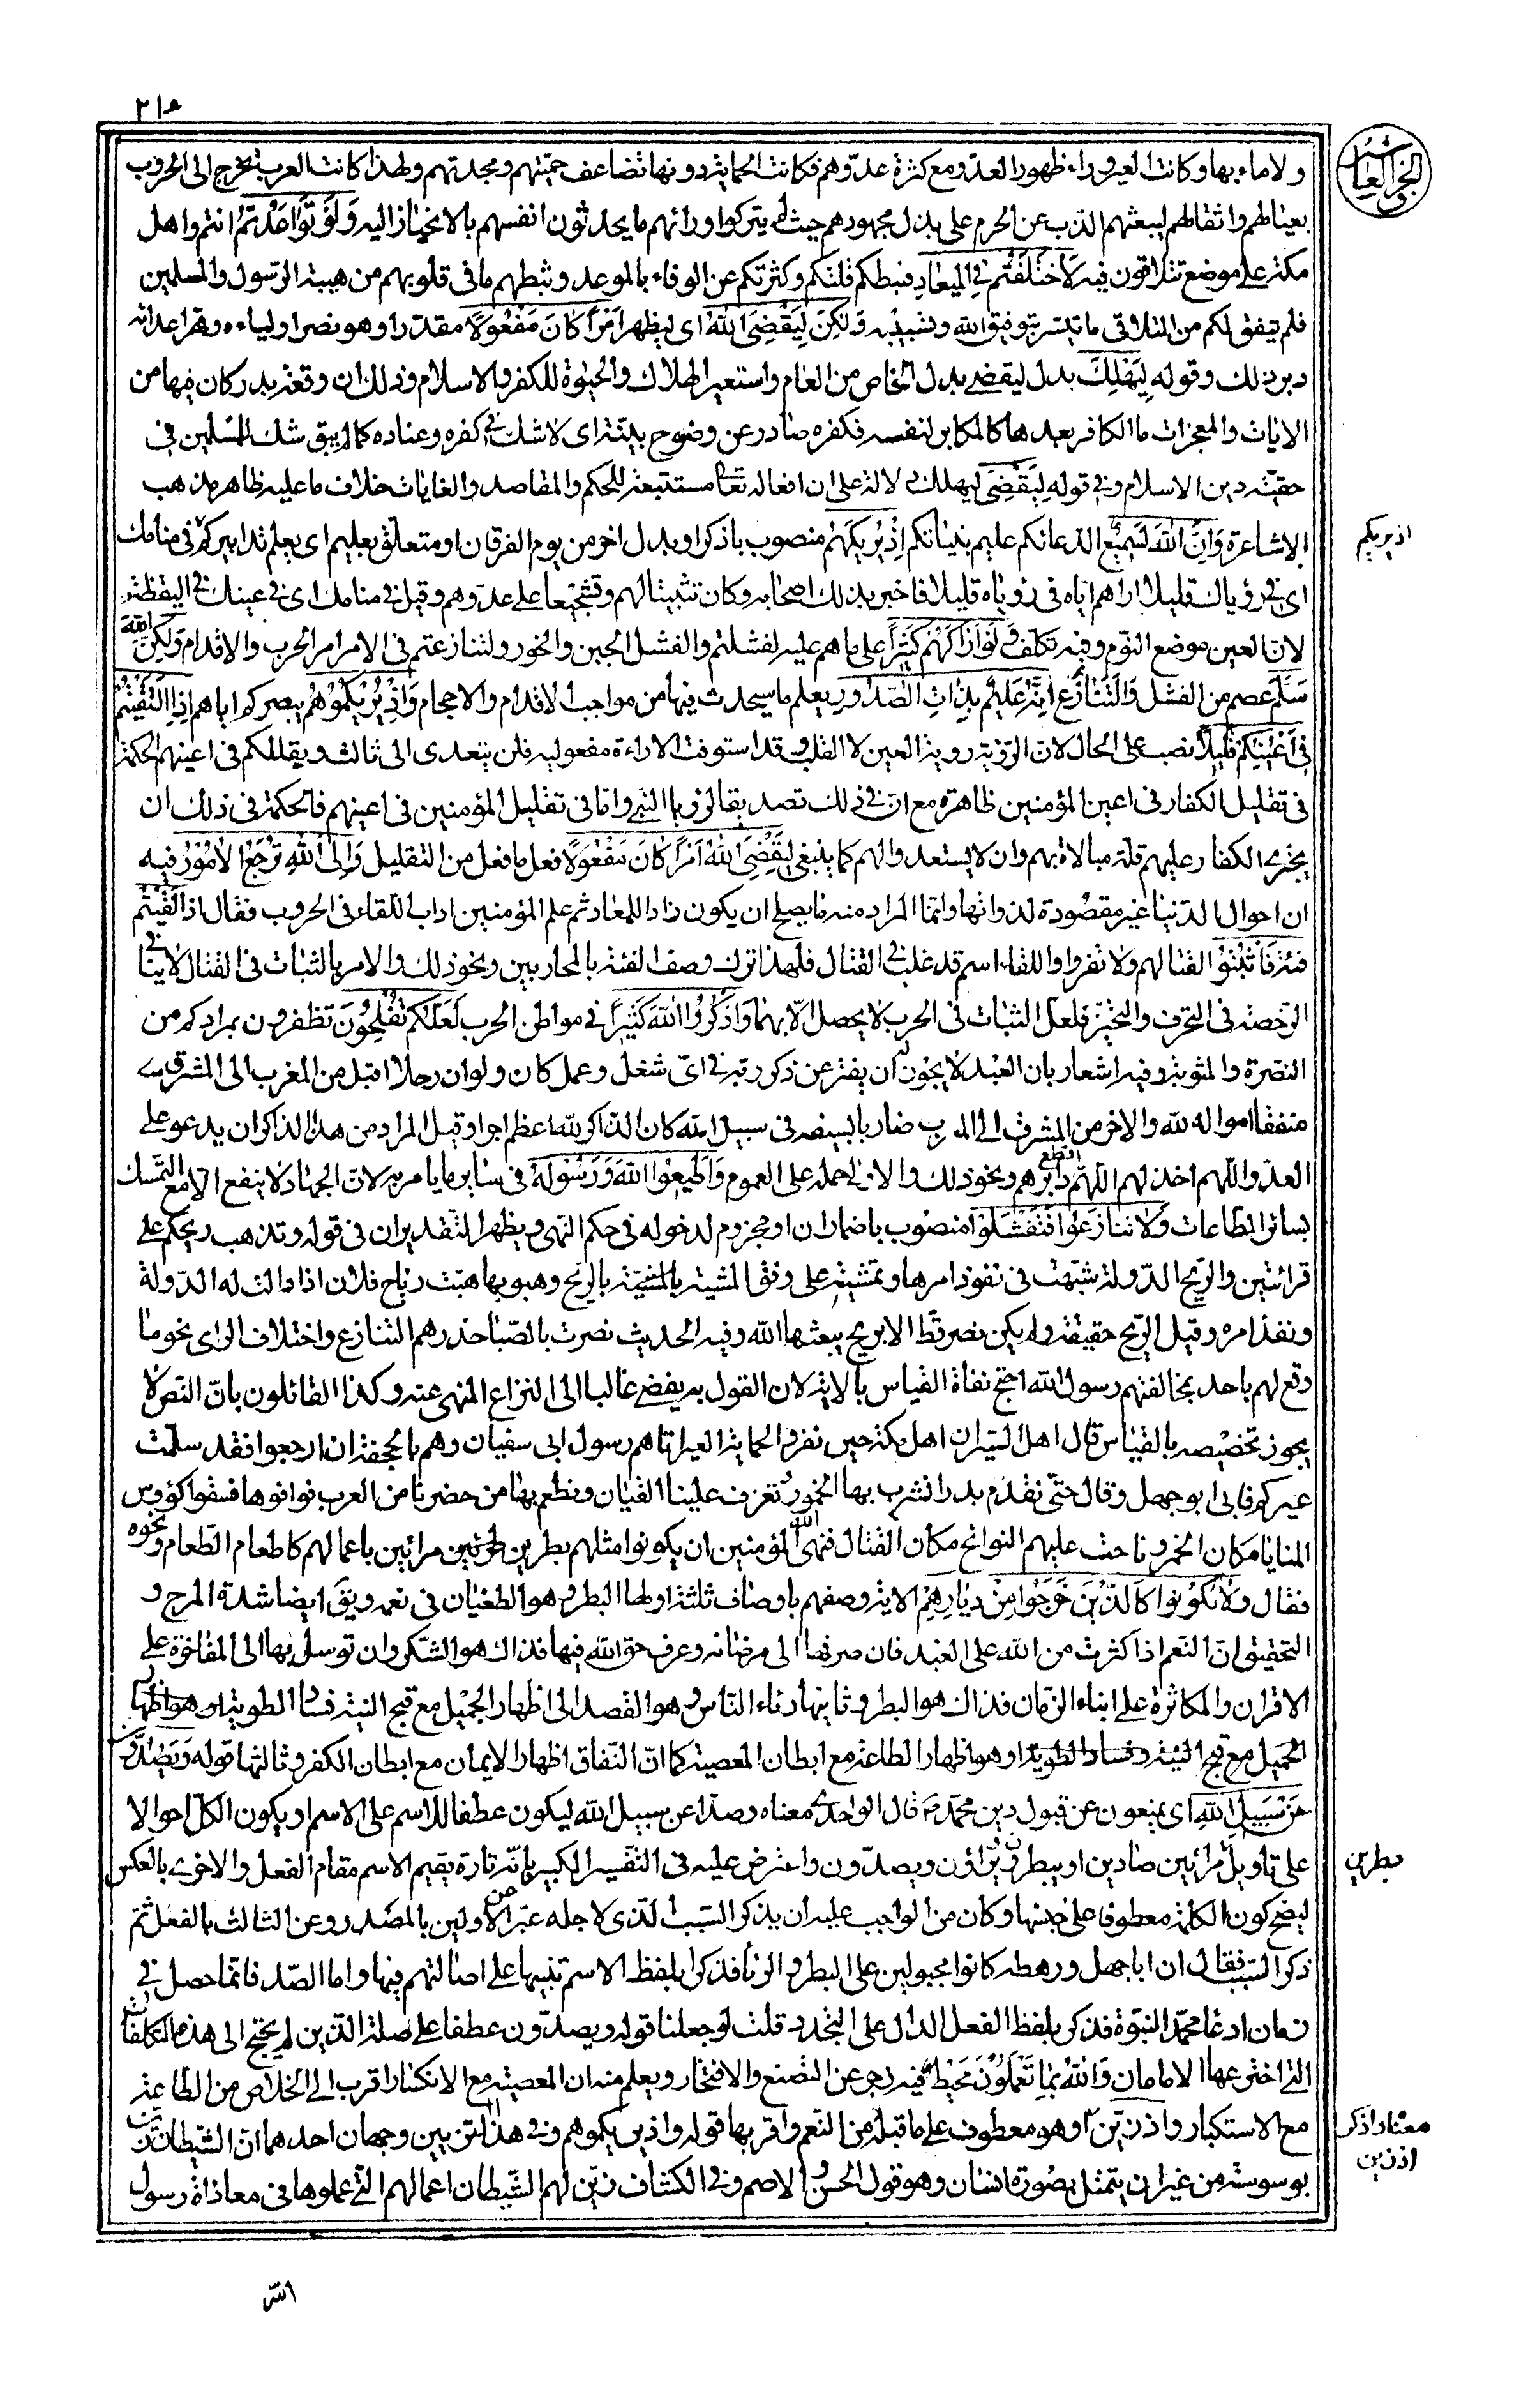 ٢١٥
الجزء العاشر
ولا ماء بها وكانت العير وراء ظهور العدو مع كثرة عدوهم فكانت الحماية دونها تضاعف حميتهم ومجدتهم ولهذا كانت العرب تخرج الى الحروب
بعيالهم واثقالهم ليبعثهم الذب عن الحرم على بذل مجهودهم حيث لم يتركوا ورائهم ما يحدثون انفسهم بالانحياز اليه وَلَوْ تَوَاعَدْتُمْ انتم واهل
مكة على موضع تتلاقون فيه لَاخْتَلَفْتُمْ فِي الْمِيعَادِ فثبطكم قلتكم وكثرتكم عن الوفاء بالموعد وثبطهم ما فى قلوبهم من هيبة الرسول والمسلمين
فلم يتفق لكم من التلاقى ما تيسر بتوفيق الله وتسبيبه وَلَكِنْ لِيَقْضِيَ اللهُ اى ليظهر اَمْرًا كَانَ مَفْعُولًا مقدرا وهو نصر اوليائه وقهر اعدائه
دبر ذلك وقوله لِيَهْلِكَ بدل ليقضى بدل الخاص من العام واستعير الهلاك والحيوة للكفر والاسلام وذلك ان وقعة بدر كان فيها من
الايات والمعجزات ما الكافر بعدها كالمكابر لنفسه فكفره صادر عن وضوح بينة اى لا شك فى كفره وعناده كما لم يبق شك للمسلمين فى
حقية دين الاسلام وفى قوله لِيَقْضِيَ ليهلك دلالة على ان افعاله تعالى مستتبعة للحكم والمقاصد والغايات خلاف ما عليه ظاهر مذهب
الاشاعرة وَاِنَّ اللهَ لَسَمِيعٌ لدعائكم عليم بنياتكم اِذْ يُرِيكَهُمُ منصوب باذكر او بدل اخر من يوم الفرقان او متعلق بعليم اى يعلم تدابيركم فى منامك
اذ يريكم
اى فى رؤياك قليلا اراهم اياه فى رؤياه قليلا فاخبر بذلك اصحابه وكان تثبيتا لهم وتشجيعا على عدوهم وقيل فى منامك اى فى عينك فى اليقظة
لان العين موضع النوم وفيه تكلف وَلَوْ اَرَاكَهُمْ كَثِيرًا على ما هم عليه لفشلتم والفشل الجبن والخور ولتنازعتم فى الامر امر الحرب والاقدام وَلَكِنَّ اللهَ
سَلَّمَ عصم من الفشل وَالتَّنَازُعِ اِنَّهُ عَلِيمٌ بِذَاتِ الصُّدُورِ يعلم ما سيحدث فيها من مواجب الاقدام والاحجام وَاِذْ يُرِيكُمُوهُمْ يبصركم اياهم اِذِ الْتَقَيْتُمْ
فِي اَعْيُنِكُمْ قَلِيلًا نصب على الحال لان الرؤية رؤية العين لا القلب وقد استوفت الاراءة مفعوليه فلن يتعدى الى ثالث ويقللكم فى اعينهم الحكمة
فى تقليل الكفار فى اعين المؤمنين ظاهرة مع ان فى ذلك تصديقا لرؤيا النبى واما فى تقليل المؤمنين فى اعينهم فالحكمة فى ذلك ان
يجترئ الكفار عليهم قلة مبالاة بهم وان لا يستعدوا لهم كما ينبغى لِيَقْضِيَ اللهُ اَمْرًا كَانَ مَفْعُولًا فعل ما فعل من التقليل وَاِلَى اللهِ تُرْجَعُ الْاُمُورُ فيه
ان احوال الدنيا غير مقصودة لذواتها وانما المراد منه ما يصلح ان يكون زادا للمعاد ثم علم المؤمنين اداب اللقاء فى الحروب فقال اذا لَقِيتُمْ
فِئَةً فَاثْبُتُوا لقتالهم ولا تفروا واللقاء اسم قد غلب فى القتال فلهذا ترك وصف الفئة بالمحاربين ونحو ذلك والامر بالثبات فى القتال لا ينافى
الرخصة فى التحرف والتحيز فلعل الثبات فى الحرب لا يحصل الا بهما وَاذْكُرُوا اللهَ كَثِيرًا فى مواطن الحرب لَعَلَّكُمْ تُفْلِحُونَ تظفرون بمرادكم من
النصرة والمثوبة وفيه اشعار بان العبد لا يجوز له ان يفتر عن ذكر ربه فى اى شغل وعمل كان ولو ان رجلا اقبل من المغرب الى المشرق
منفقا امواله لله والاخر من المشرق الى المغرب ضاربا بسيفه فى سبيل الله كان الذاكر لله اعظم اجرا وقيل المراد من هذا الذكر ان يدعو على
العدو اللهم اخذلهم اللهم اقطع دابرهم ونحو ذلك والاولى حمله على العموم وَاَطِيعُوا اللهَ وَرَسُولَهُ فى سائر ما يأمر به لان الجهاد لا ينفع الا مع التمسك
بسائر الطاعات وَلَا تَنَازَعُوا فَتَفْشَلُوا منصوب باضمار ان او مجزوم لدخوله فى حكم النهى ويظهر التقديران فى قوله وتذهب ريحكم على
قرائتين والريح الدولة شبهت فى نفوذ امرها وتمشيته على وفق المشية بالريح وهبوبها هبت رياح فلان اذا دالت له الدولة
ونفذ امره وقيل الريح حقيقة ولم يكن نصر قط الا بريح يبعثها الله وفيه الحديث نصرت بالصبا حذرهم التنازع واختلاف الراى نحو ما
وقع لهم باحد بمخالفتهم رسول الله احتج نفاة القياس بالاية لان القول به يفضى غالبا الى النزاع المنهى عنه وكذا القائلون بان النص لا
يجوز تخصيصه بالقياس قال اهل السير ان اهل مكة حين نفروا لحماية العير اتاهم رسول ابى سفيان وهم بالجحفة ان ارجعوا فقد سلمت
عيركم فابى ابو جهل وقال حتى نقدم بدرا نشرب بها الخمور وتعزف علينا القيان ونطعم بها من حضرنا من العرب فوافوها فسقوا كؤوس
المنايا مكان الخمر وناحت عليهم النوائح مكان القتال فنهى الله المؤمنين ان يكونوا مثلهم بطرين طربين مرائين باعمالهم كاطعام الطعام ونحوه
فقال وَلَا تَكُونُوا كَالَّذِينَ خَرَجُوا مِنْ دِيَارِهِمْ الاية وصفهم باوصاف ثلثة اولها البطر وهو الطغيان فى نعمه ويق ايضا شدة المرح و
التحقيق ان النعم اذا كثرت من الله على العبد فان صرفها الى مرضاته وعرف حق الله فيها فذاك هو الشكر وان توسل بها الى المفاخرة على
الاقران والمكاثرة على ابناء الزمان فذاك هو البطر وثانيها رئاء الناس وهو القصد الى اظهار الجميل مع قبح النية وفساد الطوية او هو اظهار
الجميل مع قبح النية وفساد الطوية او هو اظهار الطاعة مع ابطان المعصية كما ان النفاق اظهار الايمان مع ابطان الكفر وثالثها قوله وَيَصُدُّونَ
عَنْ سَبِيلِ اللهِ اى يمنعون عن قبول دين محمد ص قال الواحدى معناه وصدا عن سبيل الله ليكون عطفا للاسم على الاسم او يكون الكل احوالا
على تاويل مرائين صادين او يبطرون ويراؤن ويصدون واعترض عليه فى التفسير الكبير بانه تارة يقيم الاسم مقام الفعل والاخرى بالعكس
بطرين
ليصح كون الكلمة معطوفا على جنسها وكان من الواجب عليه ان يذكر السبب الذى لاجله عبر عن الاولين بالمصدر وعن الثالث بالفعل ثم
ذكر السبب فقال ان ابا جهل ورهطه كانوا مجبولين على البطر والرئا فذكرا بلفظ الاسم تنبيها على اصالتهم فيها واما الصد فانما حصل فى
زمان ادعا محمد النبوة فذكر بلفظ الفعل الدال على التجدد قلت لو جعلنا قوله ويصدون عطفا على صلة الذين لم يحتج الى هذه التكلفات
التى اخترعها الامامان وَاللهُ بِمَا تَعْمَلُونَ مُحِيطٌ فيه زجر عن التصنع والافتخار ويعلم منه ان المعصية مع الانكسار اقرب الى الخلاص من الطاعة
مع الاستكبار واذ زين او هو معطوف على ما قبله من النعم واقربها قوله واذ يريكموهم وفى هذا التزيين وجهان احدهما ان الشيطان زين
معناه اذكر
اذ زين
بوسوسته من غير ان يتمثل بصورة انسان وهو قول الحسن والاصم وفى الكشاف زين لهم الشيطان اعمالهم التى عملوها فى معاداة رسول
الله